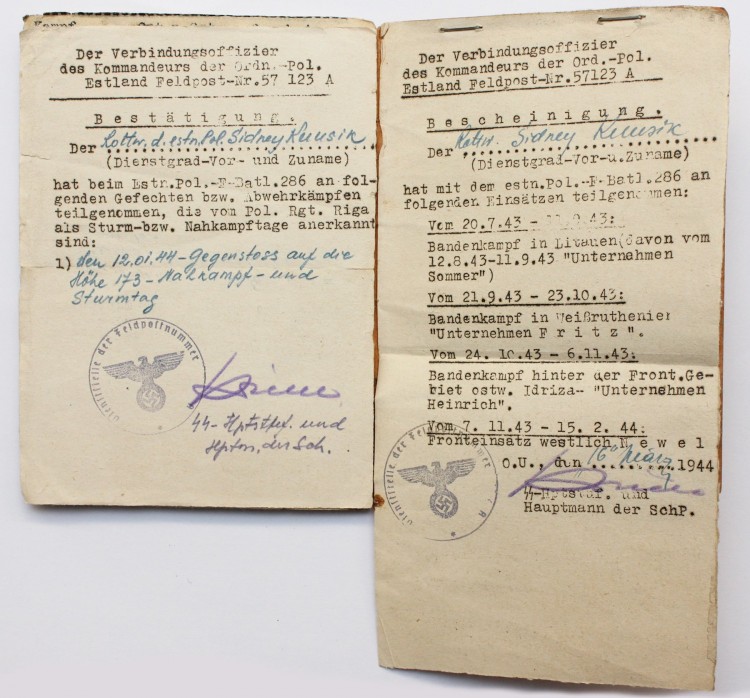 Der Verbindungsoffizier
des Kommandeurs der Ordn.-Pol.
Estland Feldpost-Nr.57 123 A
Bestätigung.
Der Rottw. d. estn. Pol. Sidney Kuusik
(Dienstgrad-Vor- und Zuname)
hat beim Estn.Pol.-F-Batl.286 an fol-
genden Gefechten bzw. Abwehrkämpfen
teilgenommen, die vom Pol. Rgt. Riga
als Sturm-bzw. Nahkampftage anerkannt
sind:
1) den 12.01.44 - Gegenstoss auf die
Höhe 173 - Nahkampf- und
Sturmtag
Dienststelle der Feldpostnummer
SS-Hptstuf. und
Hptm. der Sch.
Der Verbindungsoffizier
des Kommandeurs der Ord.-Pol.
Estland Feldpost-Nr.57123 A
Bescheinigung.
Der Rottw. Sidney Kuusik
(Dienstgrad-Vor-u.Zuname)
hat mit dem estn.Pol.-F-Batl.286 an
folgenden Einsätzen teilgenommen:
Vom 20.7.43 - 11.9.43:
Bandenkampf in Litauen(davon vom
12.8.43-11.9.43 "Unternehmen
Sommer")
Vom 21.9.43 - 23.10.43:
Bandenkampf in Weißruthenien
"Unternehmen F r i t z ".
Vom 24. 10.43 - 6.11.43:
Bandenkampf hinter der Front.Ge-
biet ostw. Idriza- "Unternehmen
Heinrich".
Vom 7. 11.43 - 15. 2. 44:
Fronteinsatz westlich N e w e l
O.U., den 16. März 1944
SS-Hptstuf. und
Hauptmann der SchP.
Dienststelle der Feldpostnummer